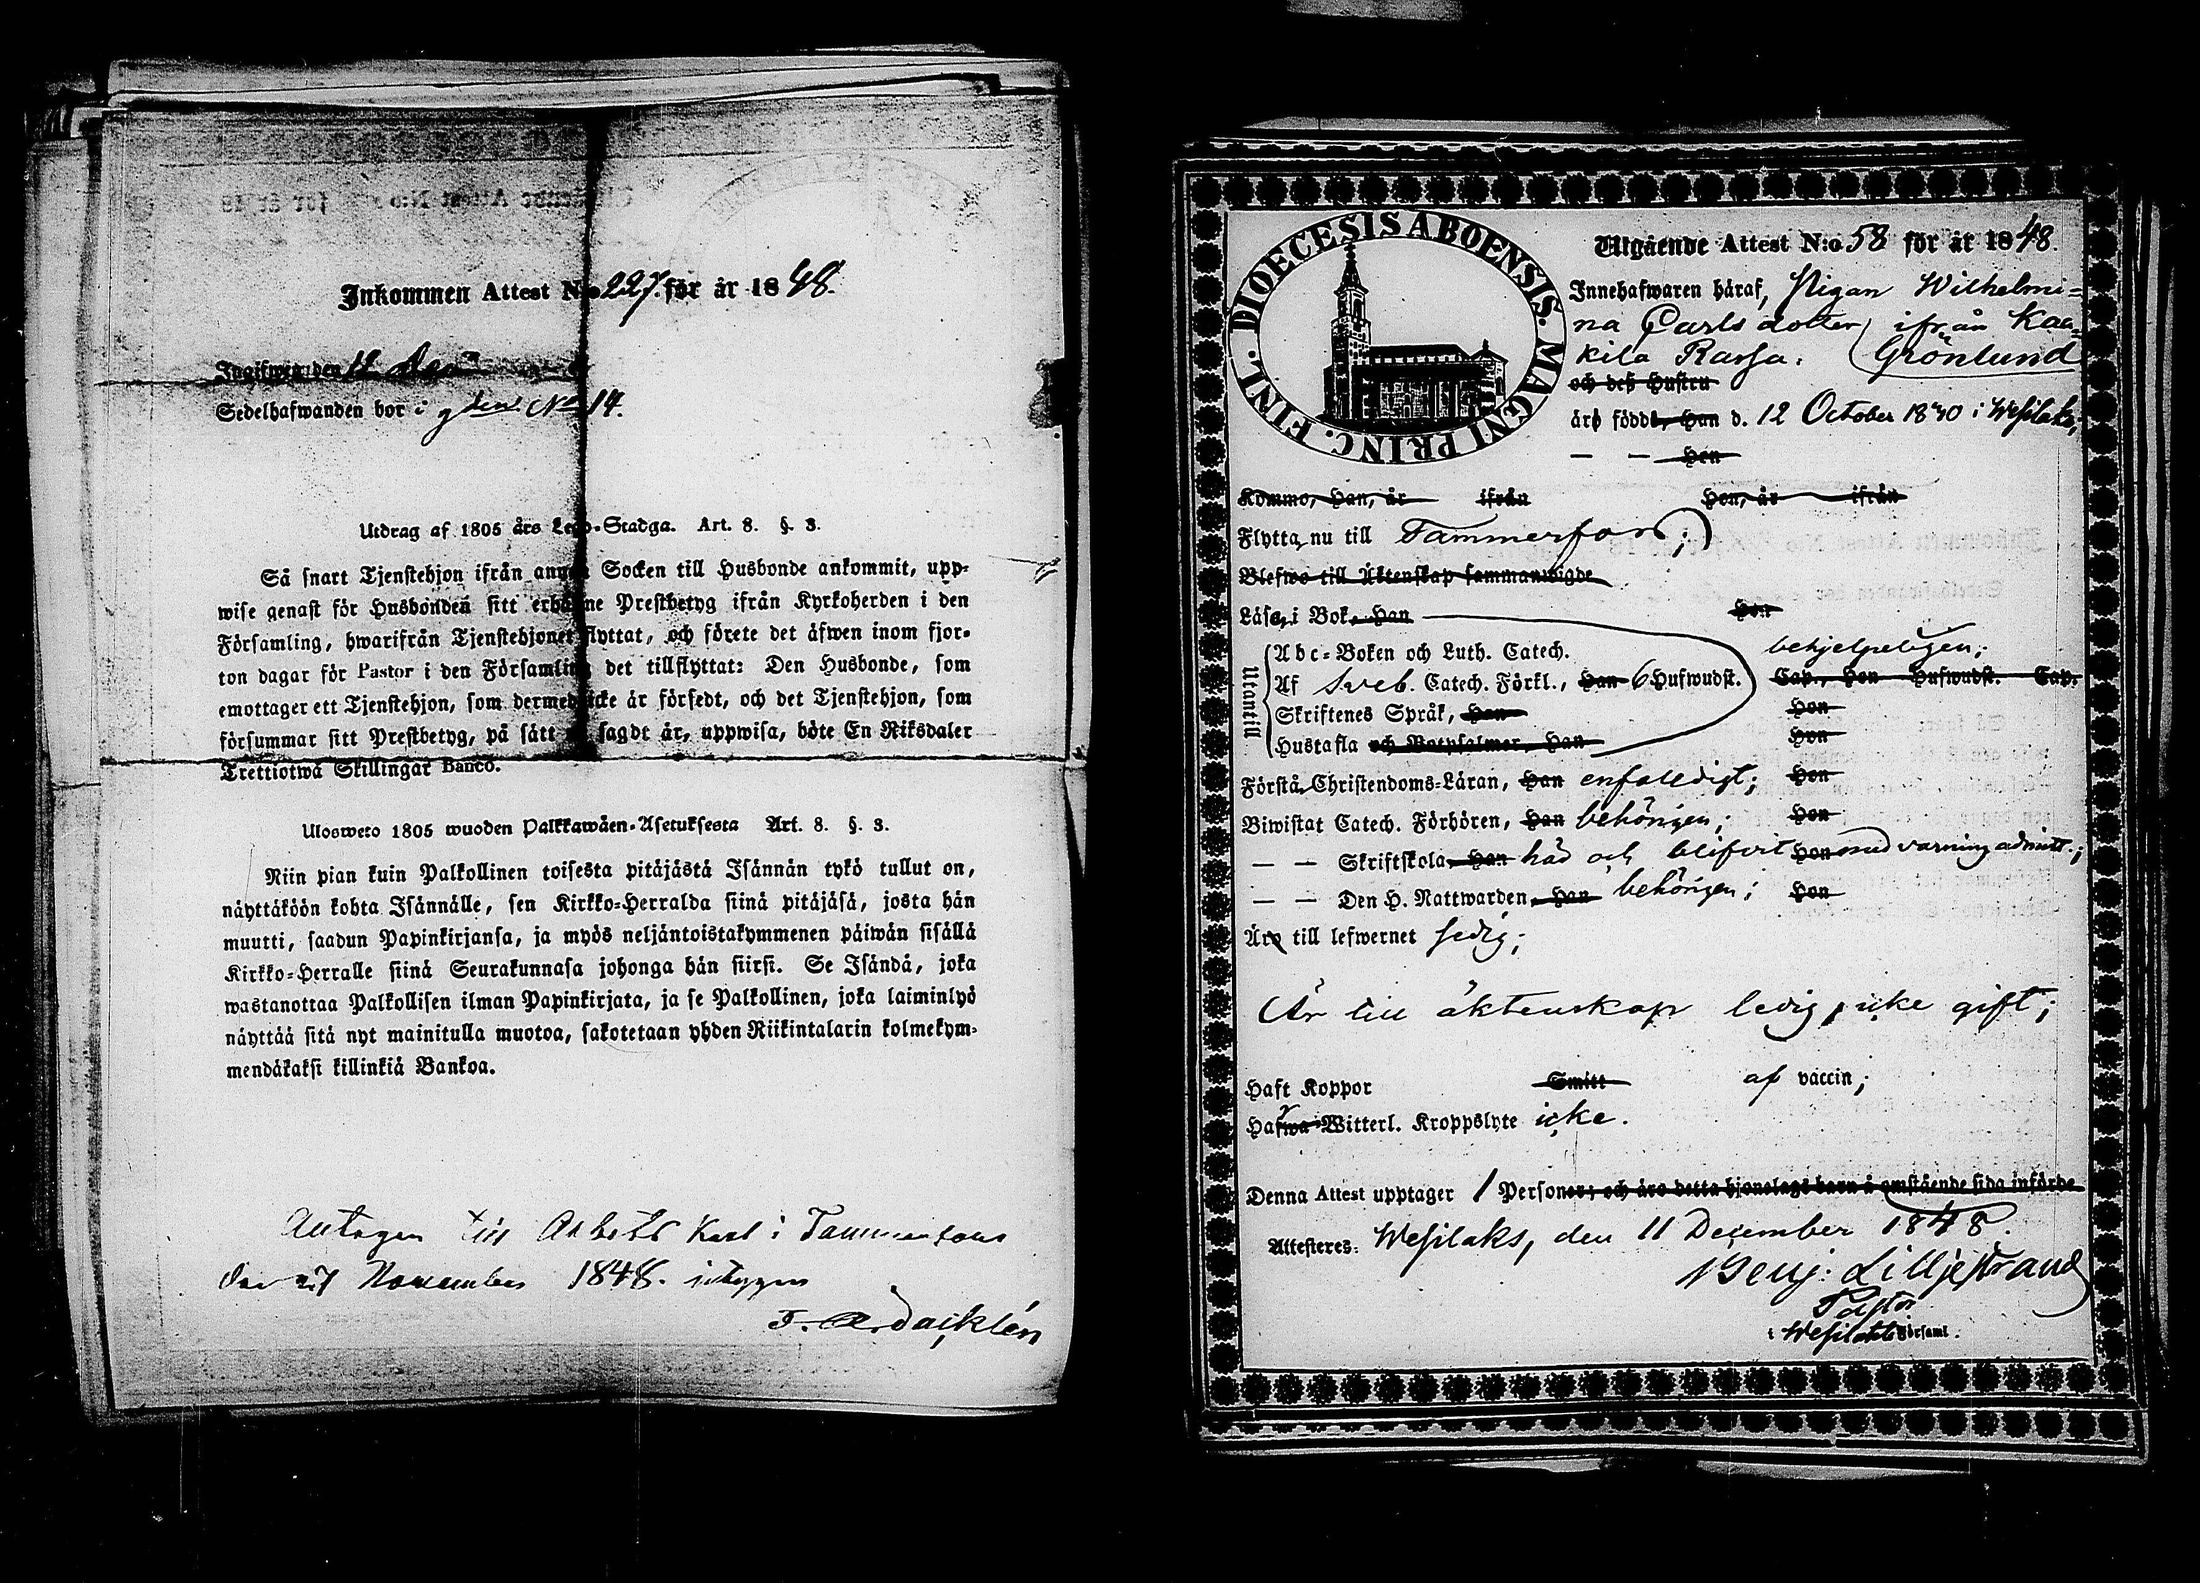 Inkommen Attest N:o 227. för år 1848.
Ingifwen den 11
Sedelhafwanden bor i No 14.
Utdrag af 1805 års Lego-Stadga. Art. 8. §. 3.
Så snart Tjenstehjon ifrån annan Socken till Husbonde ankommit, upp-
wise genast för Husbonden sitt erhållne Prestbetyg ifrån Kyrkoherden i den
Församling, hwarifrån Tjenstehjonet flyttat, och förete det äfwen inom fjor-
ton dagar för Pastor i den Församling det tillflyttat: Den Husbonde, som
emottager ett Tjenstehjon, som dermed icke är försedt, och det Tjenstehjon, som
försummar sitt Prestbetyg, på sätt sagdt är, uppwisa, böte En Riksdaler
Trettiotwå Skillingar Banco.
Ulosweto 1805 wuoden Palkkawäen-Asetuksesta Art. 8. §. 3.
Niin pian kuin Palkollinen toisesta pitäjästä Isännän tykö tullut on,
näyttäköön kohta Isännälle, sen Kirkko-Herralda siinä pitäjäsä, josta hän
muutti, saadun Papinkirjansa, ja myös neljäntoistakymmenen päiwän sisällä
Kirkko-Herralle siinä Seurakunnasa johonga hän siirsi. Se Isändä, joka
wastanottaa Palkollisen ilman Papinkirjata, ja se Palkollinen, joka laiminlyö
näyttää sitä nyt mainitulla muotoa, sakotetaan yhden Riikintalarin kolmekym-
mendäkaksi killinkiä Bankoa.
Antagen till Arbets Karl i Tammerfors
November 1848. intygar
DIOECESIS ABOENSIS. MAGNI PRINC. FINL.
Utgående Attest N:o 58 för år 1848.
Innehafwaren häraf, Pigan Wilhelmi-
na Carlsdotter ifrån Kaa-
kila Rassa. (Grönlund
och deß Hustru
äro födde, Han d. 12 October 1840 i Wesilaks,
— — Hon
Kommo, Han, år ifrån Hon, år ifrån
Flytta nu till Tammerfors;
Blefwo till Äktenskap sammanwigde
Läsa, i Bok, Han Hon
Utantill
Abc-Boken och Luth. Catech. behjelpeligen;
Af Sveb. Catech. Förkl., Han 6 Hufwudst. Cap., Hon Hufwudst. Cap.
Skriftenes Språk, Han Hon
Hustafla och Botpsalmer, Han Hon
Förstå Christendoms-Läran, Han enfaldigt; Hon
Biwistat Catech. Förhören, Han behörigen; Hon
— — Skriftskola, Han här och blifvit Hon med varning admitt.;
— — Den H. Nattwarden, Han behörigen; Hon
Äro till lefwernet sedig;
Är till äktenskap ledig, icke gift;
Haft Koppor Smitt af vaccin;
Hafwa Witterl. Kroppslyte icke.
Denna Attest upptager 1 Personer; och äro detta hjonelags barn å omstående sida införde
Attesteres: Wesilaks, den 11 December 1848.
Benj. Lilljestrand
Pastor
i Wesilaks Församl.